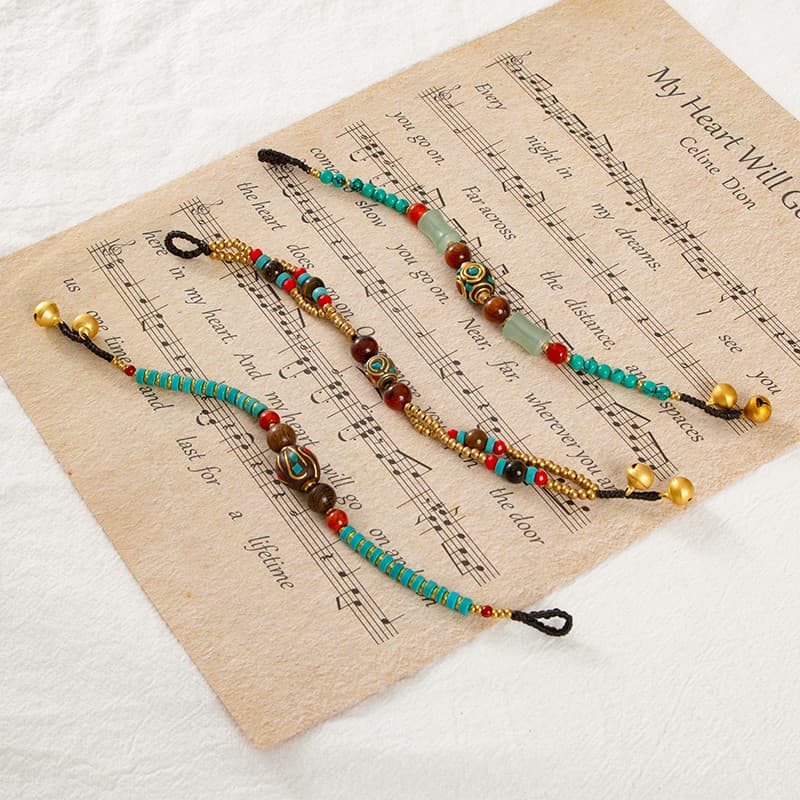 My Heart Will Go
Celine Dion
Every night in my dreams. I see you
you go on. Far across the distance, spaces
show you go on. Near, far, wherever you
the heart does go on. the door
here in my heart. And my heart will go on and
us one time and last for a lifetime